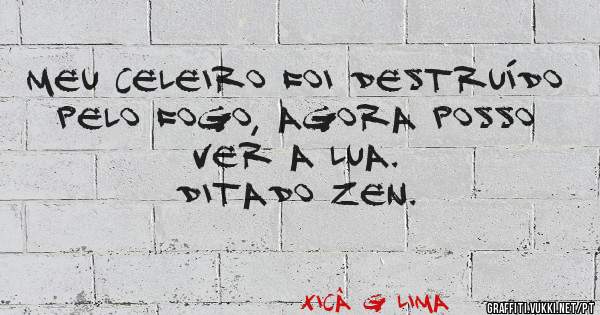 MEU CELEIRO FOI DESTRUÍDO
PELO FOGO, AGORA POSSO
VER A LUA.
DITADO ZEN.
XICÂ G LIMA
GRAFFITI.VUKKI.NET/PT